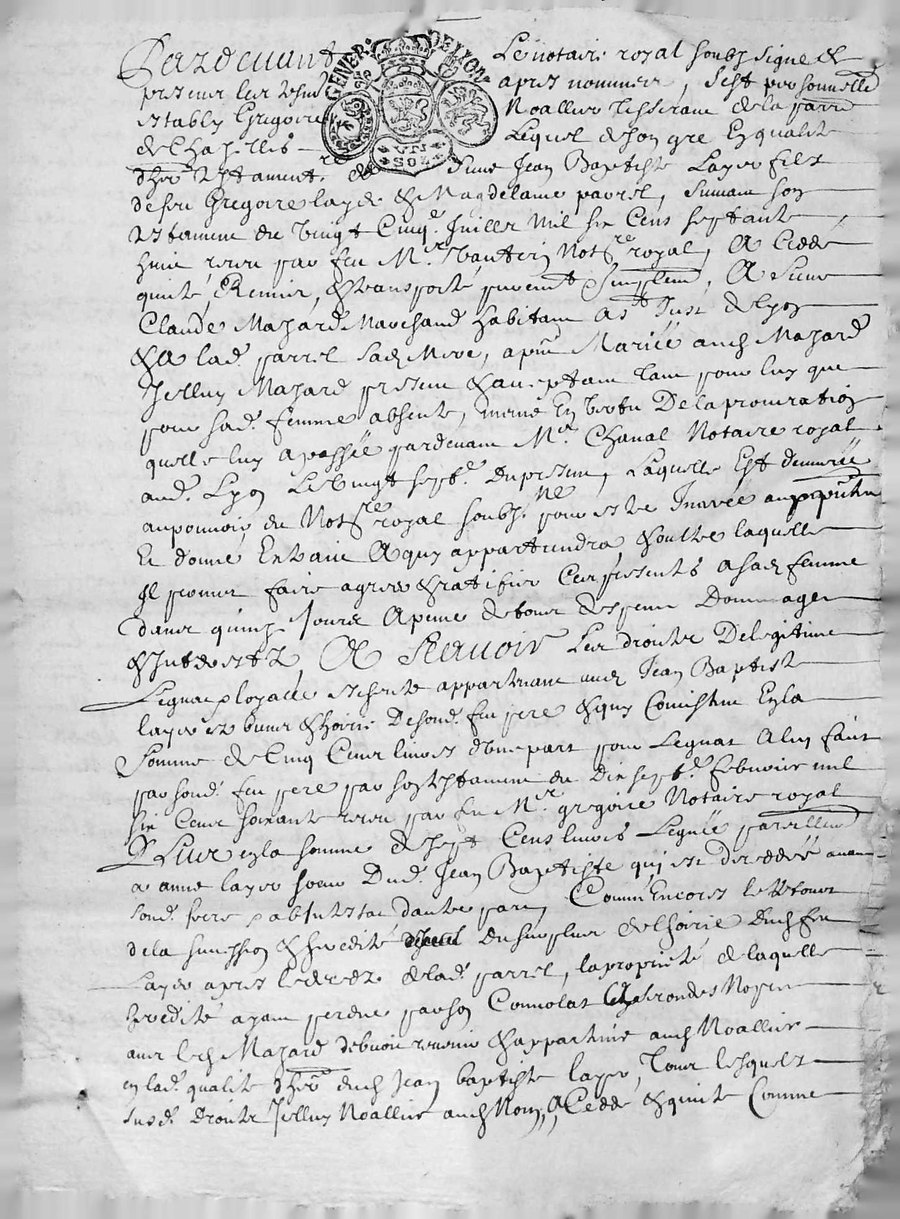 Pardevant Le notaire royal soubzsigne &
presens les tesm apres nommes, s'est personnelle
establý Gregoire Noallier tisserant de la parre
de Chazelles Lequel de son gre En qualite
d'her testament.re de Sieur Jean Baptiste Layer filz
de feu Gregoire layer & Magdelaine parrel, suivant son
testament du Vingt Cinq.e Juillet Mil six Cens septante
huit receu par feu M.re Nottre royal, A Cedé
quité Remis, & transporté purem.t & simplem, A Sieur
Claude Mazard Marchand habitant a S.t Just de lyon
& A lad. parrel sad mere, apnt Mariée aud Mazard
Jcelluy Mazard present & acceptant tant pour luy que
pour sad. femme absente, mesme En vertu De la procuration
quelle luy a passée pardevant M.re Chanal Notaire royal
aud. Lyon Le Vingt sept.e Du present, Laquelle Est demurée
au pouvoir du Not.re royal soubz.ne pour estre Inseree au
Et donné Extraict A quy appartiendra, & oultre laquelle
Il promet faire agreer & ratifier Ces presents a sad femme
dans quinze Jours A peine de tous despens Dommages
& Interestz A Scavoir Les droitz De legitime
Legnat & escheute appartenant aud Jean Baptiste
layer es biens & hoirie De sond. feu pere & quy Consistent En la
Somme de Cinq Cens livres d'une part pour Legnat A luy faict
par sond. feu pere par son testament du Dix sept.e febvrier mil
six Cens soixante receu par feu M.re gregoire Notaire royal
Plus en la somme de sept Cens livres Leguée pareillem
a anne layer soeur Dud. Jean Baptiste qui est decedée avant
sond. frere & abintestat dautre part, Comm Encores
de la succession & heredité Du surplus de l'hoirie Dud feu
Layer apres le decez de lad. parrel, la proprieté de laquelle
heredité ayant perdue par son Convolat En secondes Nopces
avec led Mazard debvoit revenir & appartenir aud Noallier
en lad. qualité d'her dud Jean baptiste layer, Tous lesquels
susd. Droitz Jcelluy Noallier aud Nom, A Cedé & quité Comme
GENER: DE LYON
UN SOL